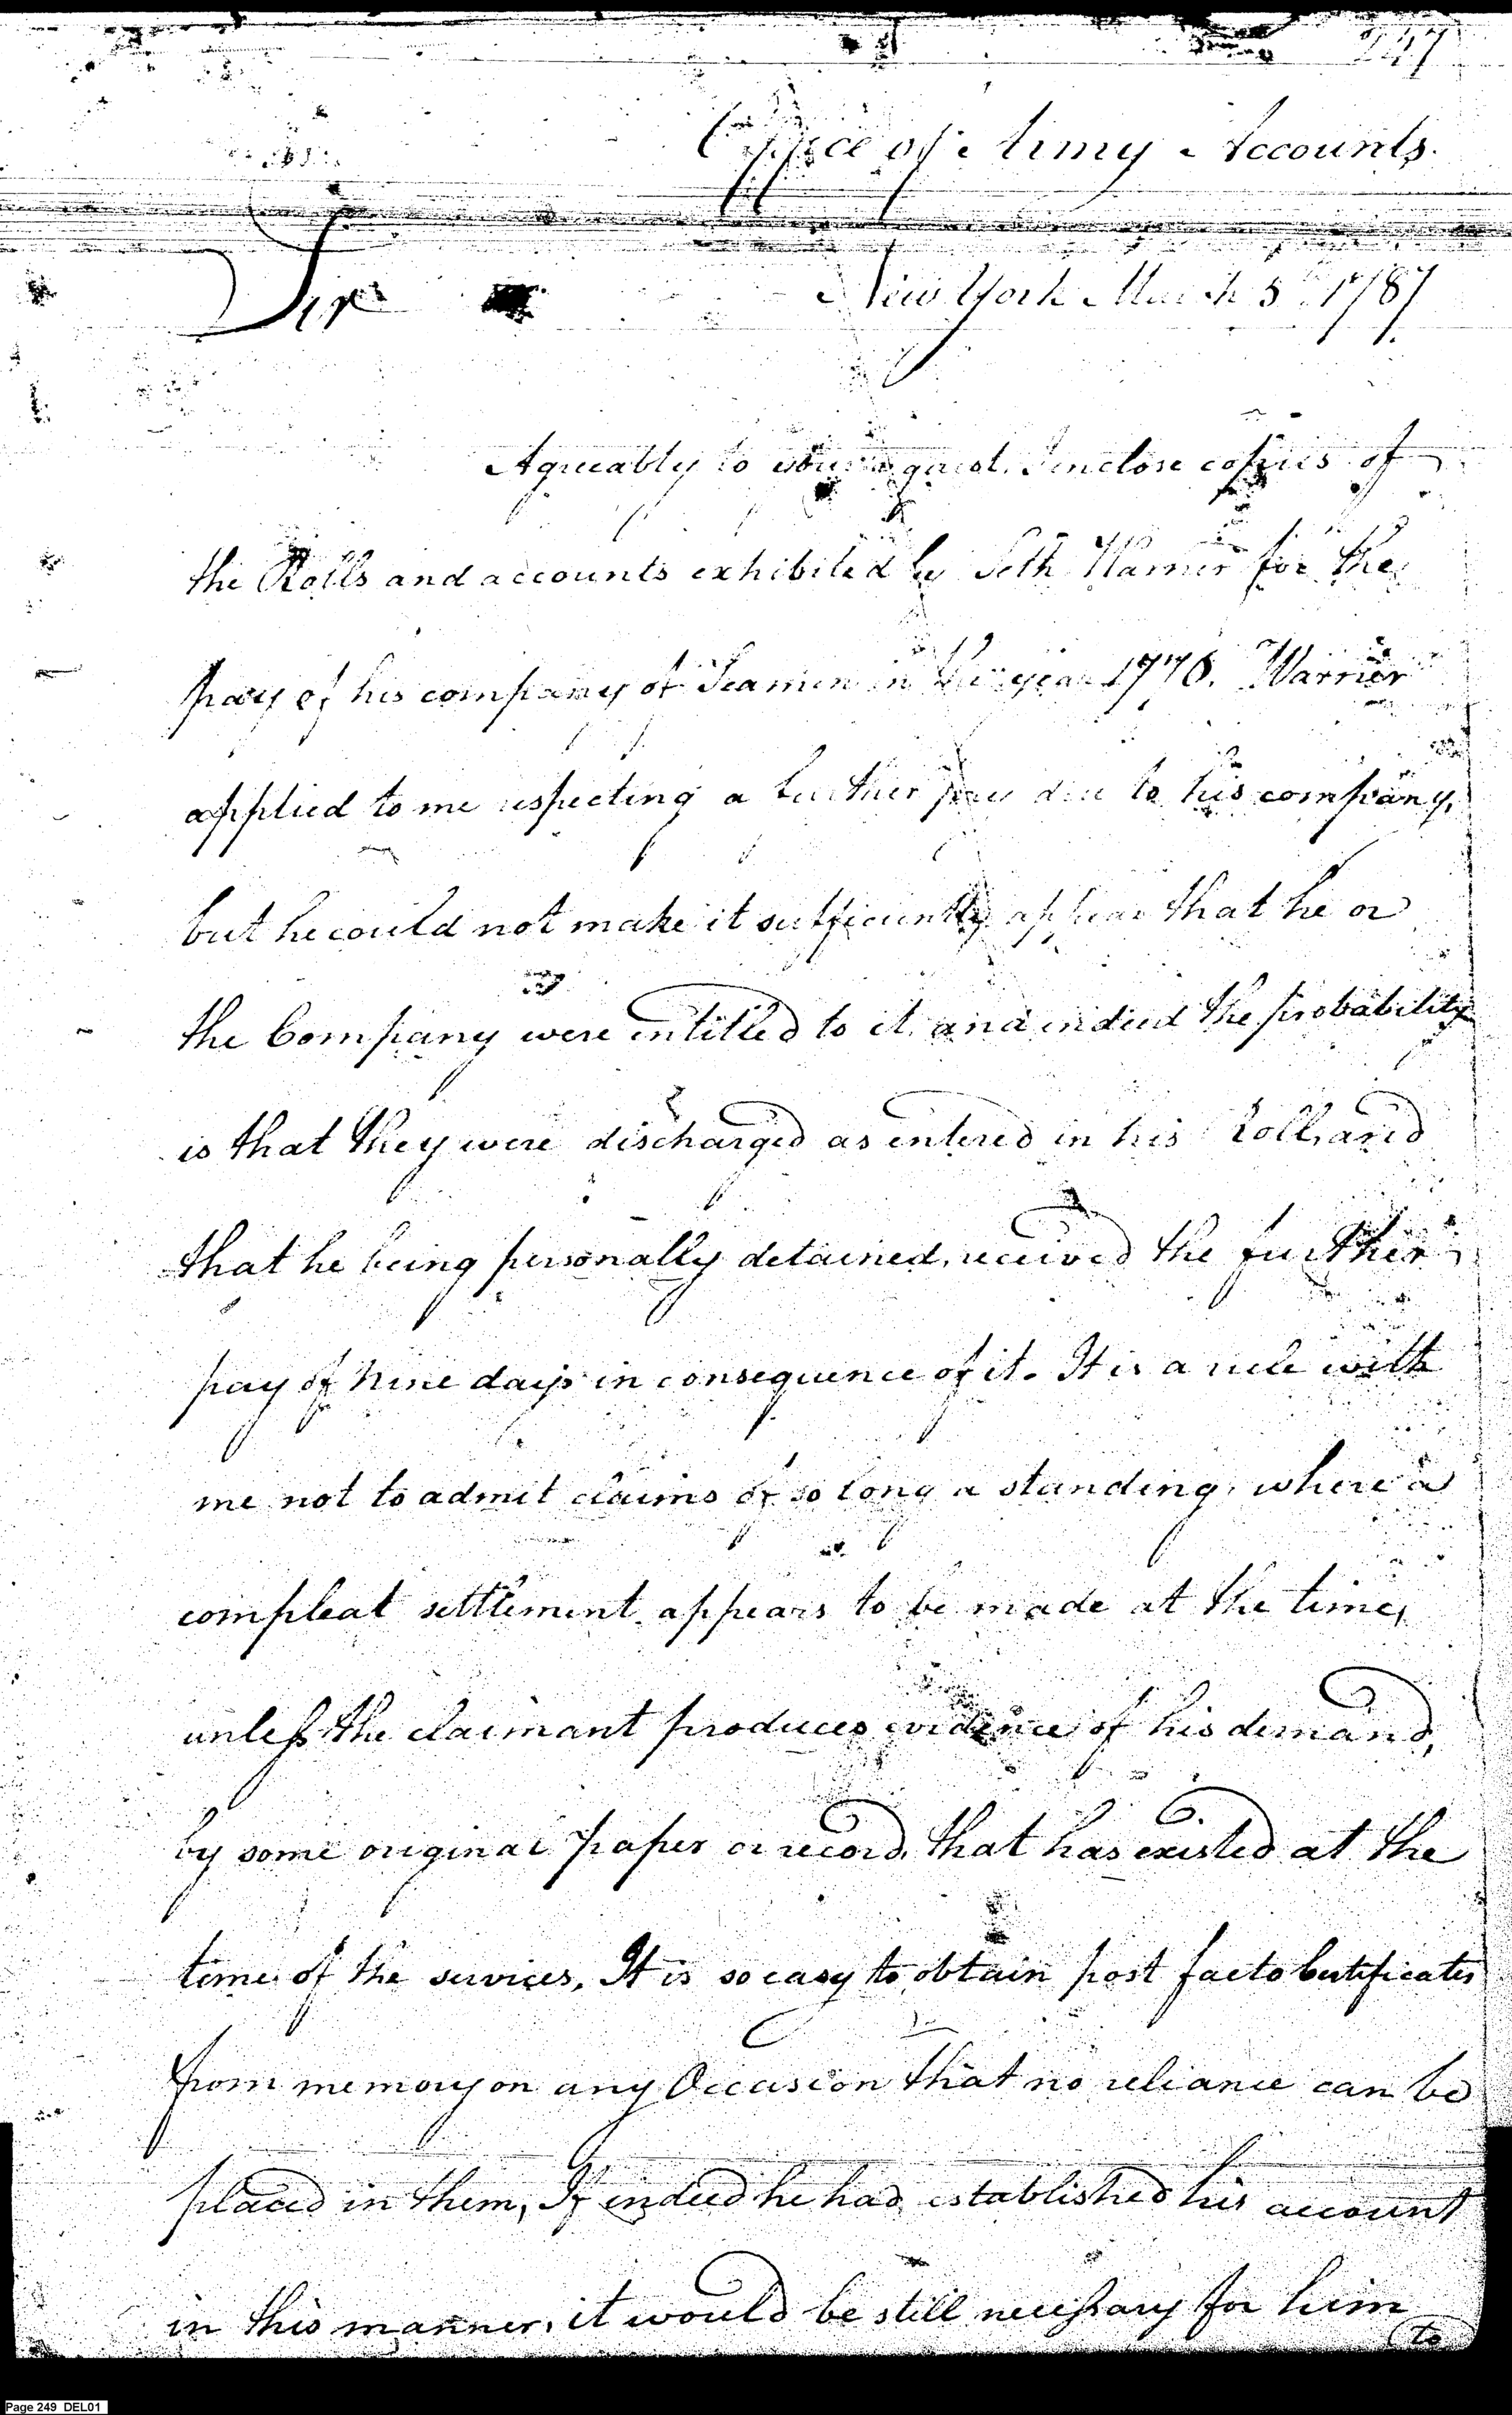 247
Office of Army Accounts.
New York March 5th 1787
Sir
Agreeably to your request. I inclose copies of
the Rolls and accounts exhibited by Seth Warner for the
pay of his company of Seamen in the year 1776. Warner
applied to me respecting a further pay due to his company,
but he could not make it sufficiently appear that he or
the Company were intitled to it. and indeed the probability
is that they were discharged as entered in his Roll, and
that he being personally detained, received the further
pay of Nine days in consequence of it. It is a rule with
me not to admit claims of so long a standing, where a
compleat settlement appears to be made at the time,
unless the claimant produces evidence of his demand,
by some original paper or record, that has existed at the
time of the services, It is so easy to obtain post facto Certificates
from memory on any Occasion that no reliance can be
placed in them, If indeed he had established his account
in this manner, it would be still necessary for him
to
Page 249 DEL01